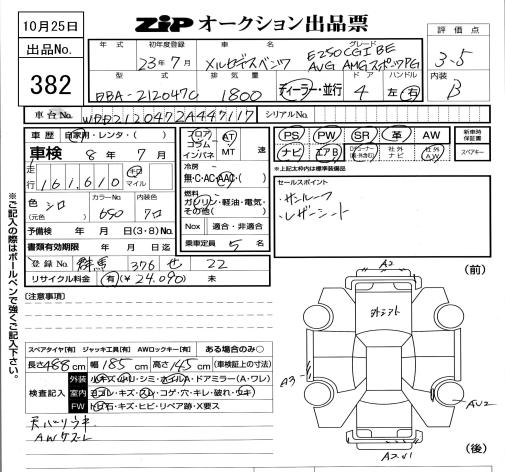 10月25日
出品No.
382
ZiP オークション出品票
評価点
3.5
内装
B
年式
初年度登録
23年7月
車名
メルセデスベンツ
グレード
E250CGI BE
AVG AMGスポーツPG
型式
DBA-212047C
排気量
1800
ディーラー・並行
ドア
4
ハンドル
左 右
車台No.
WDD2120472A447117
シリアルNo.
車歴 自家用・レンタ・( )
車検 8年 7月
走行 161,610 キロ マイル
色 シロ
(元色)
カラーNo.
650
内装色
クロ
予備検 年 月 日(3・8)No.
書類有効期限 年 月 日迄
登録No. 群馬 376 せ 22
リサイクル料金 有(¥ 24,090) 未
フロア
コラム
インパネ
AT
MT
速
冷房
無・C・AC・AAC( )
燃料
ガソリン・軽油・電気・
その他( )
Nox 適合・非適合
乗車定員 5 名
PS PW SR 革 AW
ナビ エアB 社外ナビ 社外A,W
新車時保証書
スペアキー
※上記太枠内は標準装備品
セールスポイント
・サンルーフ
・レザーシート
[注意事項]
スペアタイヤ[有] ジャッキ工具[有] AWロックキー[有] ある場合のみ○
長さ488cm 幅185cm 高さ145cm(車検証上の寸法)
検査記入
外装 小キズ・小凹・シミ・ホイルA・ドアミラー(A・ワレ)
室内 ヨゴレ・キズ・スレ・コゲ・穴・キレ・破れ・ウキ
FW 飛石・キズ・ヒビ・リペア跡・X要ス
天バリウキ
AWケズレ
(前)
A2
外ミラト
A3
AU2
(後)
※ご記入の際はボールペンで強くご記入下さい。